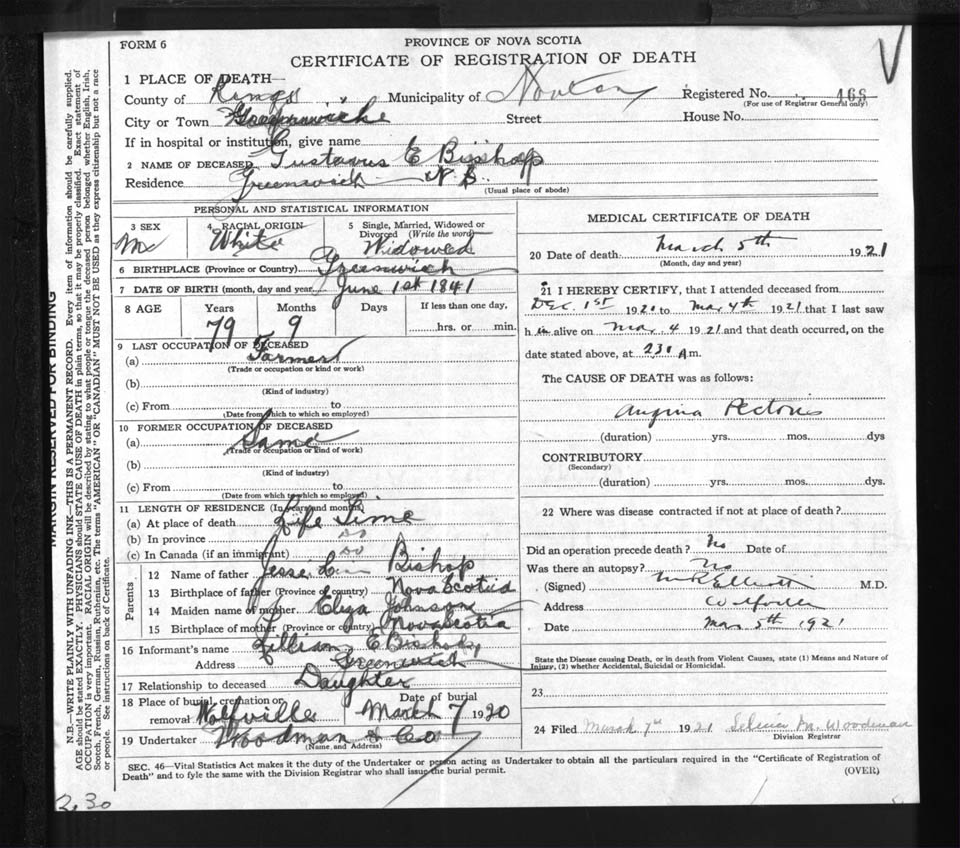 FORM 6
PROVINCE OF NOVA SCOTIA
CERTIFICATE OF REGISTRATION OF DEATH
1 PLACE OF DEATH—
County of Kings Municipality of Registered No. 468
(For use of Registrar General only)
City or Town Greenwich Street House No.
If in hospital or institution, give name
2 NAME OF DECEASED Gustavus E Bishop
Residence Greenwich N S.
(Usual place of abode)
PERSONAL AND STATISTICAL INFORMATION
3 SEX M
4 RACIAL ORIGIN White
5 Single, Married, Widowed or Divorced (Write the word) Widowed
6 BIRTHPLACE (Province or Country) Greenwich
7 DATE OF BIRTH (month, day and year) June 1st 1841
8 AGE Years Months Days If less than one day,
79 9 hrs. or min.
9 LAST OCCUPATION OF DECEASED
(a) Farmer
(Trade or occupation or kind or work)
(b)
(Kind of industry)
(c) From to
(Date from which to which so employed)
10 FORMER OCCUPATION OF DECEASED
(a) Same
(Trade or occupation or kind of work)
(b)
(Kind of industry)
(c) From to
(Date from which to which so employed)
11 LENGTH OF RESIDENCE (In years and months)
(a) At place of death Life Time
(b) In province Do
(c) In Canada (if an immigrant) Do
Parents
12 Name of father Jesse Bishop
13 Birthplace of father (Province of country) Nova Scotia
14 Maiden name of mother Eliza Johnson
15 Birthplace of mother (Province or country) Nova Scotia
16 Informant's name Lillian E Bishop
Address Greenwich
17 Relationship to deceased Daughter
18 Place of burial, cremation or removal Wolfville Date of burial March 7 1920
19 Undertaker Woodman & Co
(Name, and Address)
MEDICAL CERTIFICATE OF DEATH
20 Date of death March 5th 1921
(Month, day and year)
21 I HEREBY CERTIFY, that I attended deceased from
Dec. 1st 1920 to Mar 4th 1921 that I last saw
h im alive on Mar. 4 1921 and that death occurred, on the
date stated above, at 230 A.m.
The CAUSE OF DEATH was as follows:
Angina Pectoris
(duration) yrs. mos. dys
CONTRIBUTORY
(Secondary)
(duration) yrs. mos. dys.
22 Where was disease contracted if not at place of death?
Did an operation precede death? No Date of
Was there an autopsy? No
(Signed) Elliott M.D.
Address Wolfville
Date Mar 5th 1921
State the Disease causing Death, or in death from Violent Causes, state (1) Means and Nature of
Injury, (2) whether Accidental, Suicidal or Homicidal.
23
24 Filed March 7th 1921 M. Woodman
Division Registrar
SEC. 46—Vital Statistics Act makes it the duty of the Undertaker or person acting as Undertaker to obtain all the particulars required in the "Certificate of Registration of
Death" and to fyle the same with the Division Registrar who shall issue the burial permit.
(OVER)
2.30
MARGIN RESERVED FOR BINDING
N.B.—WRITE PLAINLY WITH UNFADING INK—THIS IS A PERMANENT RECORD. Every item of information should be carefully supplied.
AGE should be stated EXACTLY. PHYSICIANS should STATE CAUSE OF DEATH in plain terms, so that it may be properly classified. Exact statement of
OCCUPATION is very important. RACIAL ORIGIN will be described by stating to what people or tongue the deceased person belonged, whether English, Irish,
Scotch, French, German, Russian, Ruthenian, etc. The terms "AMERICAN" OR "CANADIAN" MUST NOT BE USED as they express citizenship but not a race
or people. See instructions on back of Certificate.